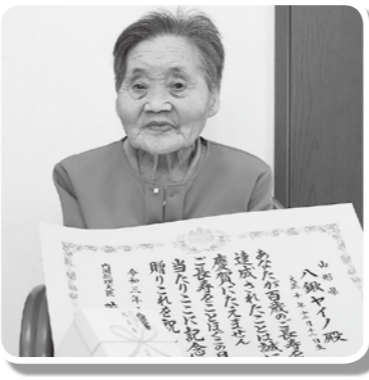 山形県
八鍬ヤイノ殿
大正十年十月二日生
あなたが百歳のご長寿を
達成されたことは誠に
慶賀にたえません
ご長寿をことほぎこの日に
当たりここに記念
贈りこれを祝
令和三年
内閣総理大臣